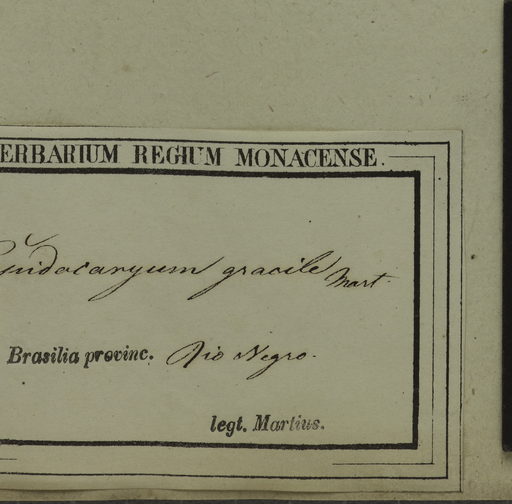 ERBARIUM REGIUM MONACENSE.
gracile Mart.
Brasilia provinc. Rio Negro.
legt. Martius.